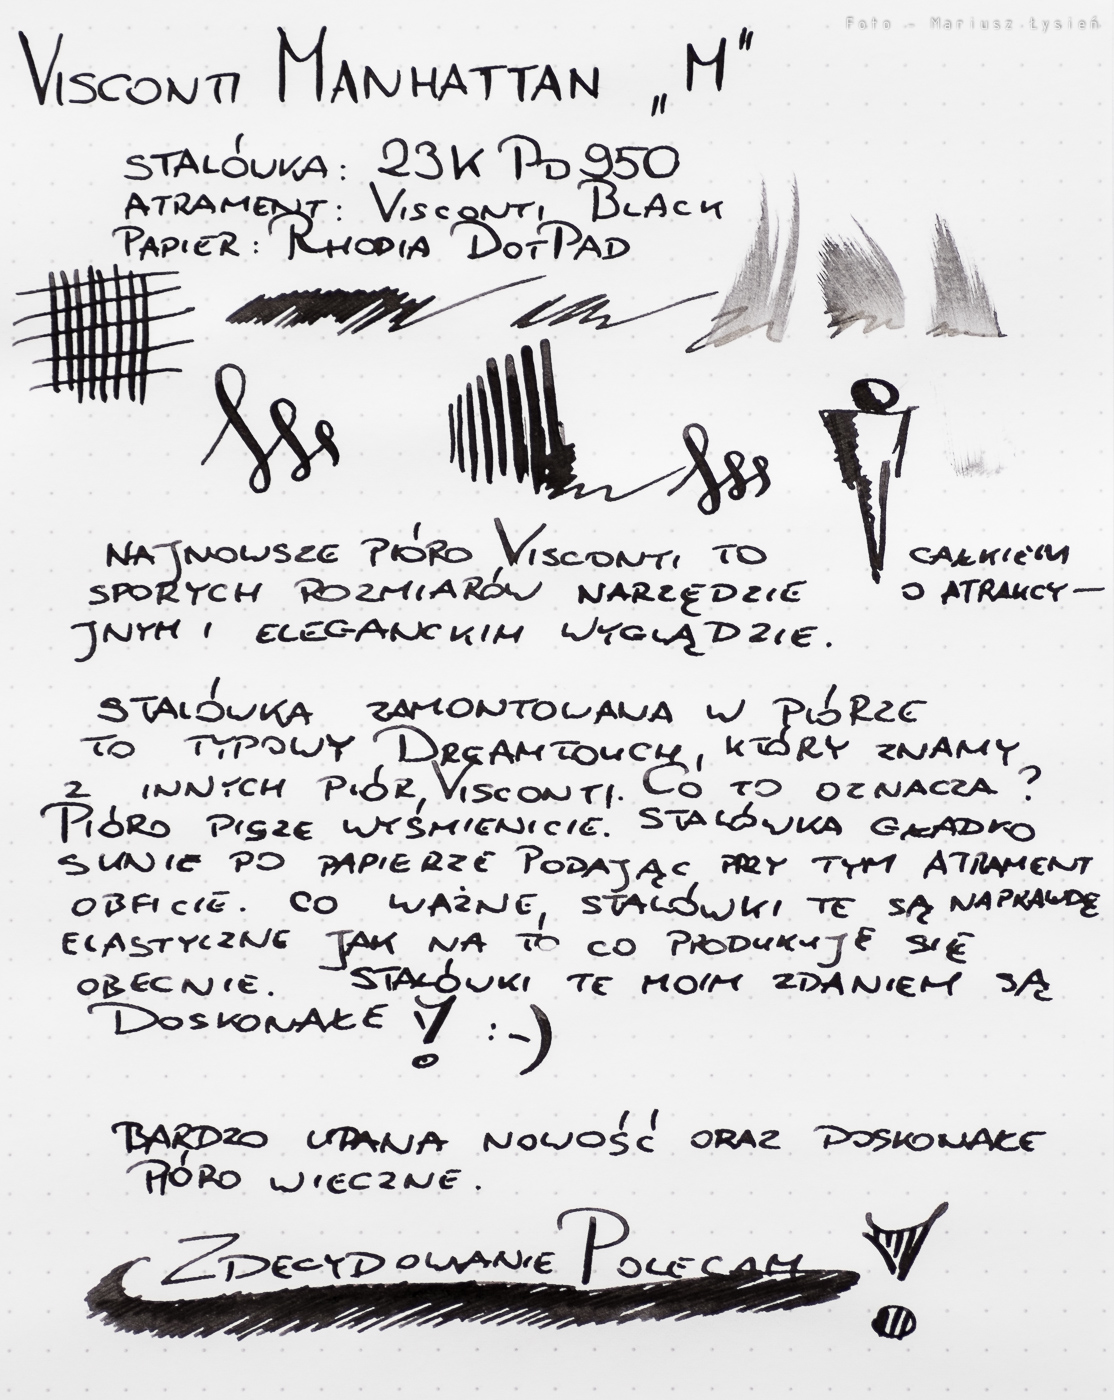 Foto - Mariusz Łysień
VISCONTI MANHATTAN „M”
STALÓWKA: 23K PD 950
ATRAMENT: VISCONTI BLACK
PAPIER: RHODIA DOTPAD
NAJNOWSZE PIÓRO VISCONTI TO CAŁKIEM
SPORYCH ROZMIARÓW NARZĘDZIE O ATRAKCY–
JNYM I ELEGANCKIM WYGLĄDZIE.
STALÓWKA ZAMONTOWANA W PIÓRZE
TO TYPOWY DREAMTOUCH, KTÓRY ZNAMY
Z INNYCH PIÓR VISCONTI. CO TO OZNACZA?
PIÓRO PISZE WYŚMIENICIE. STALÓWKA GŁADKO
SUNIE PO PAPIERZE PODAJĄC PRZY TYM ATRAMENT
OBFICIE. CO WAŻNE, STALÓWKI TE SĄ NAPRAWDĘ
ELASTYCZNE JAK NA TO CO PRODUKUJE SIĘ
OBECNIE. STALÓWKI TE MOIM ZDANIEM SĄ
DOSKONAŁE! :-)
BARDZO UDANA NOWOŚĆ ORAZ DOSKONAŁE
PIÓRO WIECZNE.
ZDECYDOWANIE POLECAM!